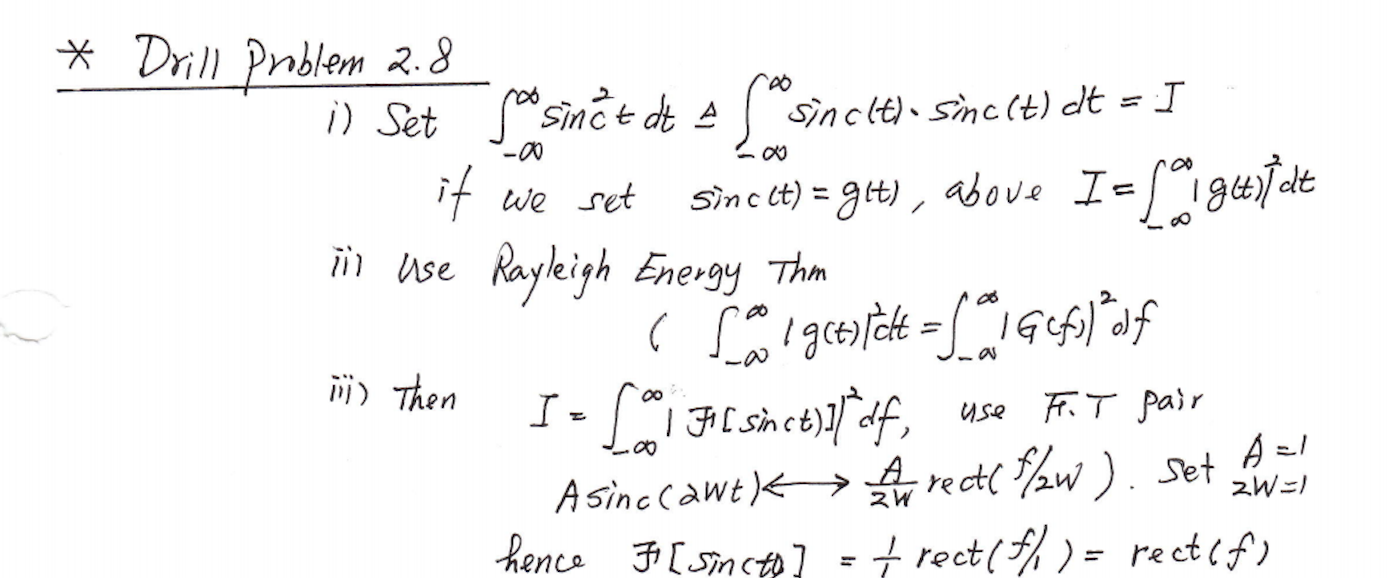 * Drill Problem 2.8
i) Set ∫_{-∞}^{∞} sinc² t dt ≜ ∫_{-∞}^{∞} sinc(t) · sinc(t) dt = I
if we set sinc(t) = g(t), above I = ∫_{-∞}^{∞} |g(t)|² dt
ii) Use Rayleigh Energy Thm
( ∫_{-∞}^{∞} |g(t)|² dt = ∫_{-∞}^{∞} |G(f)|² df
iii) Then I = ∫_{-∞}^{∞} |F[sinc(t)]|² df, use F.T pair
A sinc(2Wt) ⟷ A/2W rect(f/2W). Set A=1 2W=1
hence F[sinc(t)] = 1/1 rect(f/1) = rect(f)